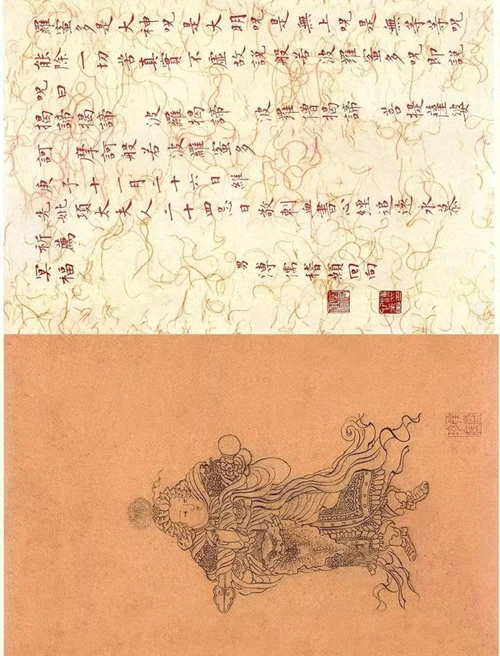 羅蜜多是大神咒是大明咒是無上咒是無等等咒
能除一切苦真實不虛故說般若波羅蜜多咒即說
咒曰 揭諦揭諦 波羅揭諦 波羅僧揭諦 菩提薩婆
訶 摩訶般若波羅蜜多
庚子十一月二十六日維
先妣項太夫人二十四忌日敬刺血書心經追遠永慕
祈薦
冥福 男溥儒稽顙回向